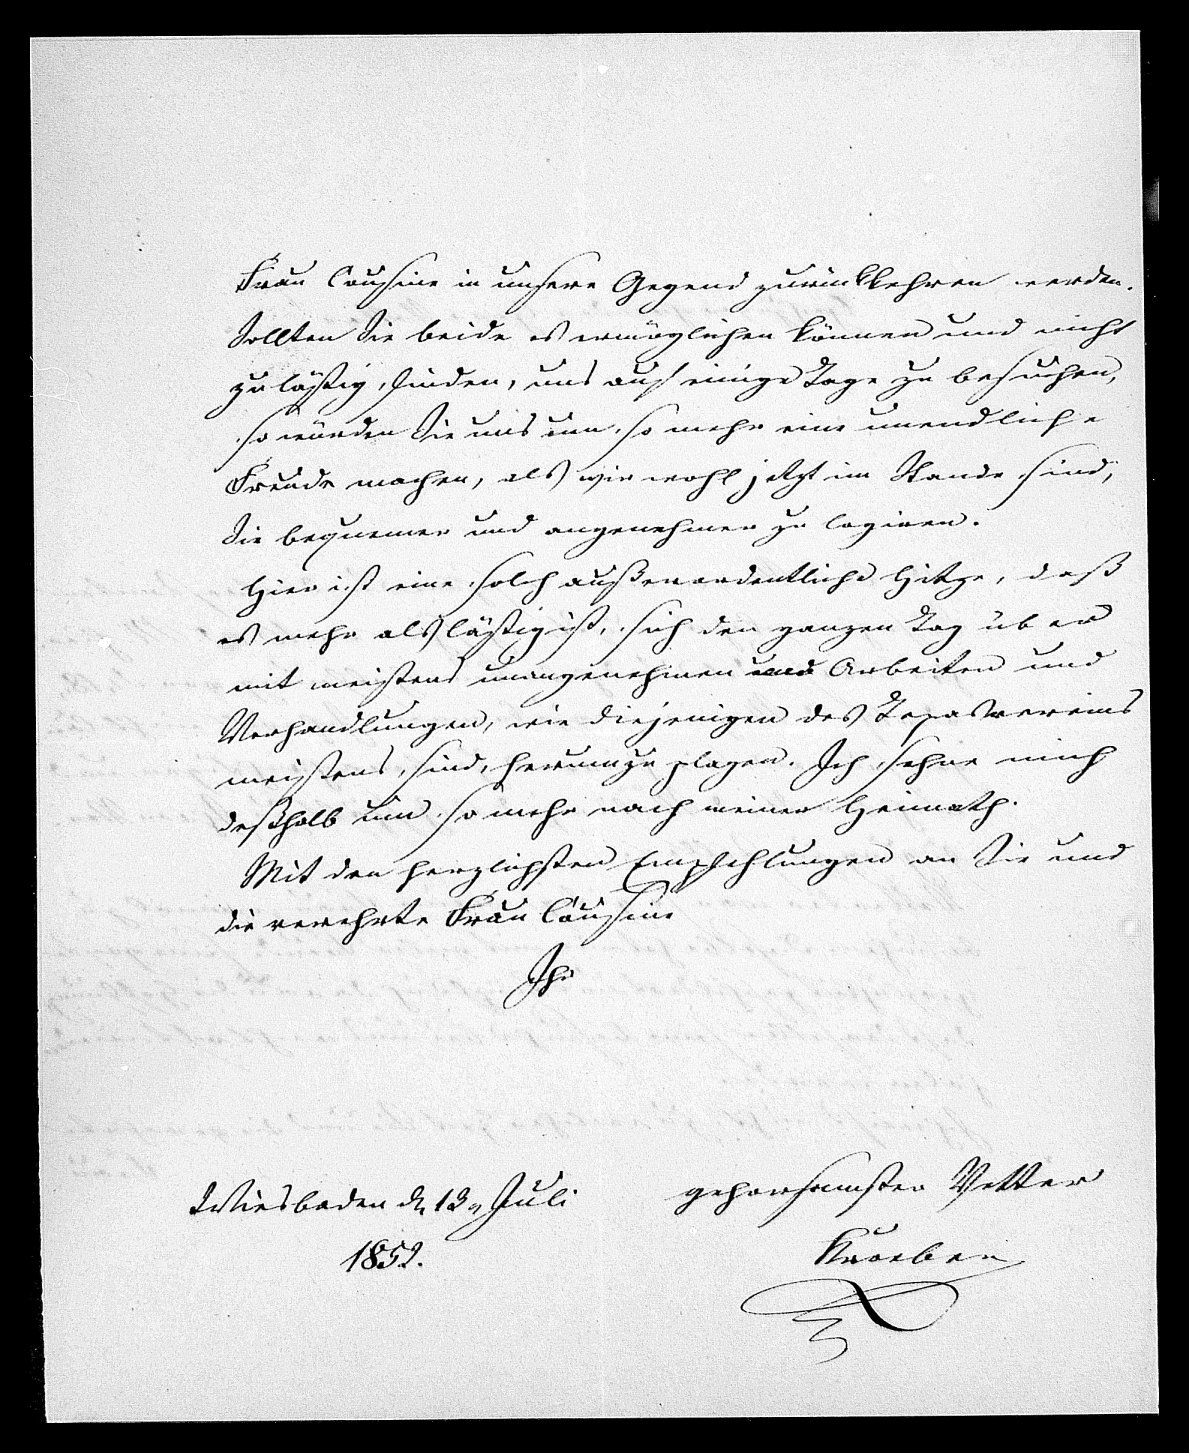 Frau Cousine in unsere Gegend zurückkehren werden.
Sollten Sie beide es ermöglichen können und nicht
zu lästig finden, uns auf einige Tage zu besuchen,
so würden Sie uns um so mehr eine unendliche
Freude machen, als wir wohl jetzt im Stande sind,
Sie bequemer und angenehmer zu logiren.
Hier ist eine solch außerordentliche Hitze, daß
es mehr als lästig ist, sich den ganzen Tag über
mit meistens unangenehmen und Arbeiten und
Verhandlungen, wie diejenigen des Texasvereins
meistens sind, herumzuplagen. Ich sehne mich
deßhalb um so mehr nach meiner Heimath.
Mit den herzlichsten Empfehlungen an Sie und
die verehrte Frau Cousine
Ihr
gehorsamster Vetter
Wiesbaden d. 13. Juli
1852.